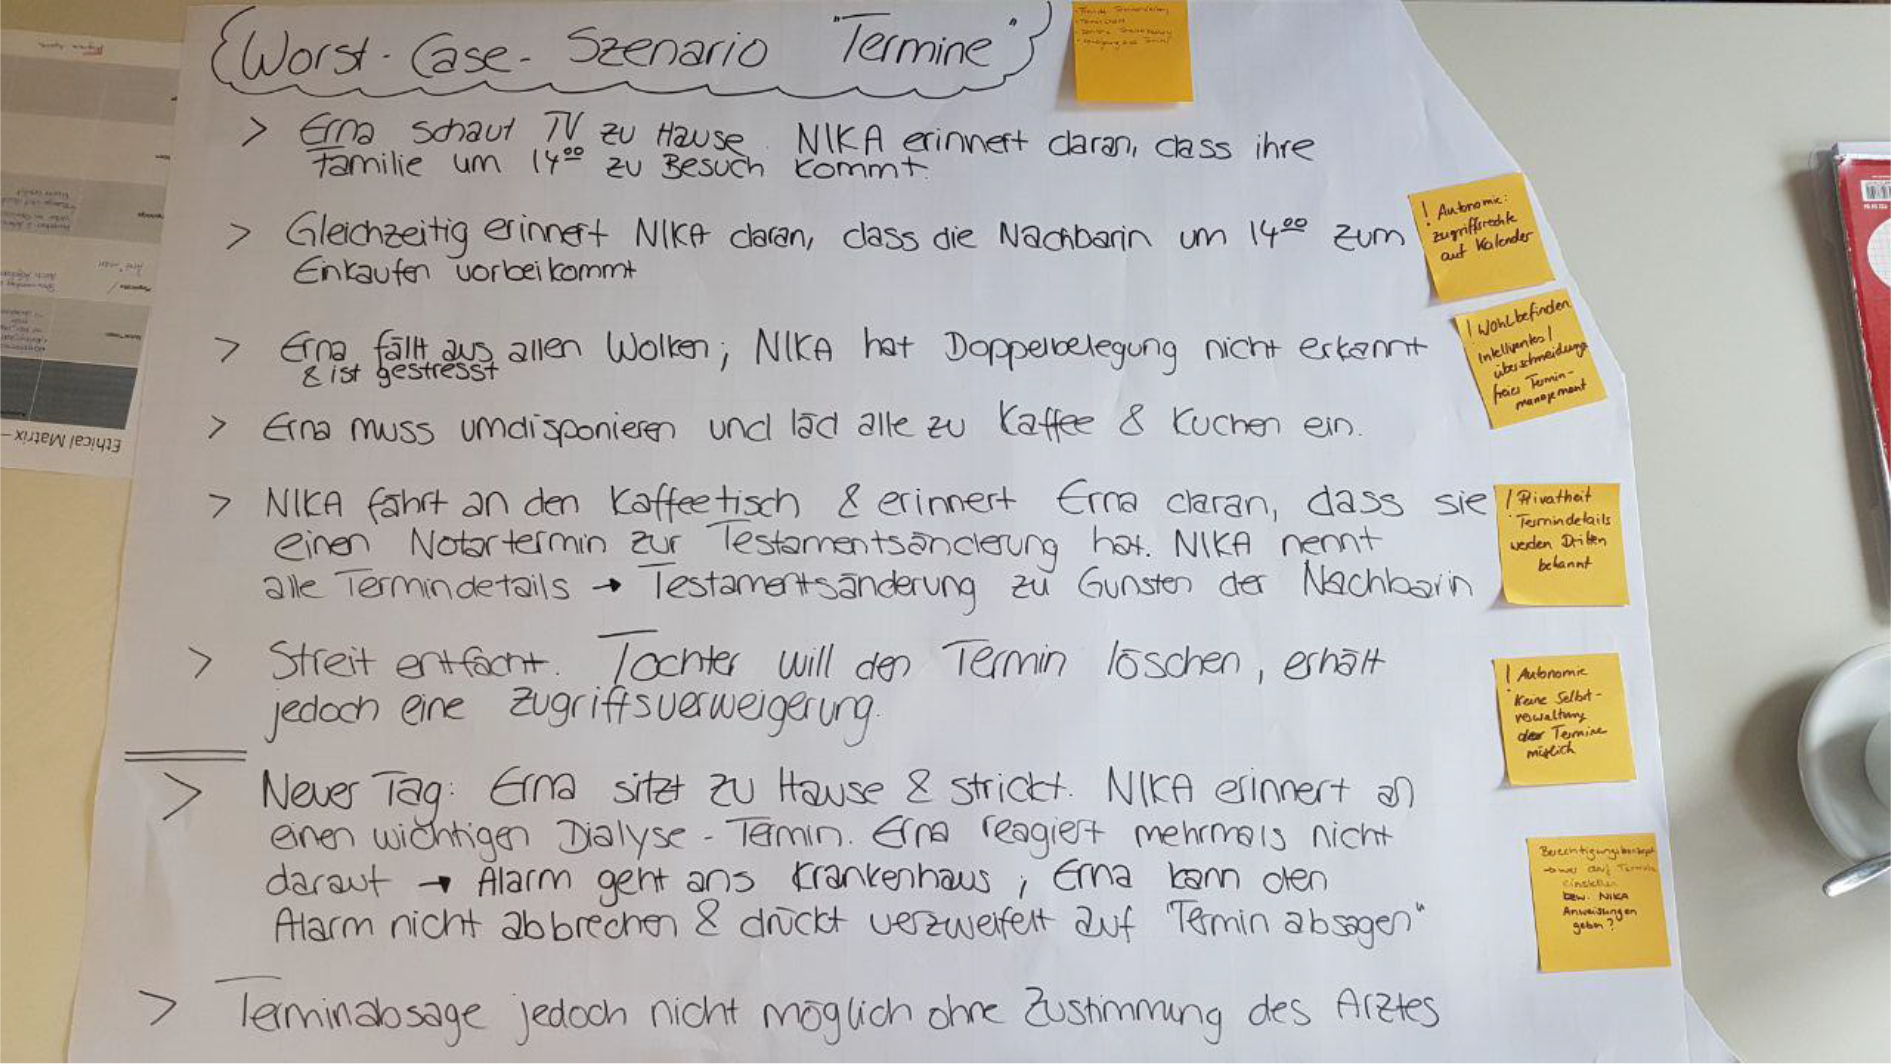 Worst-Case-Szenario "Termine"
> Erna schaut TV zu Hause. NIKA erinnert daran, dass ihre
Familie um 14⁰⁰ zu Besuch kommt.
> Gleichzeitig erinnert NIKA daran, dass die Nachbarin um 14⁰⁰ zum
Einkaufen vorbeikommt
> Erna fällt aus allen Wolken; NIKA hat Doppelbelegung nicht erkannt
& ist gestresst
> Erna muss umdisponieren und läd alle zu Kaffee & Kuchen ein.
> NIKA fährt an den Kaffeetisch & erinnert Erna daran, dass sie
einen Notartermin zur Testamentsänderung hat. NIKA nennt
alle Termindetails → Testamentsänderung zu Gunsten der Nachbarin
> Streit entfacht. Tochter will den Termin löschen, erhält
jedoch eine Zugriffsverweigerung.
> Neuer Tag: Erna sitzt zu Hause & strickt. NIKA erinnert an
einen wichtigen Dialyse-Termin. Erna reagiert mehrmals nicht
darauf → Alarm geht ans Krankenhaus; Erna kann den
Alarm nicht abbrechen & drückt verzweifelt auf "Termin absagen"
> Terminabsage jedoch nicht möglich ohne Zustimmung des Arztes
! Autonomie:
Zugriffsrechte
auf Kalender
! Wohlbefinden
Intelligentes/
überschneidungs
freies Termin-
management
! Privatheit
Termindetails
werden Dritten
bekannt
! Autonomie
Keine Selbst-
verwaltung
der Termine
möglich
Berechtigungskonzept
→ wer darf Termine
einstellen
bzw. NIKA
Anweisungen
geben?
Ethical Matrix –